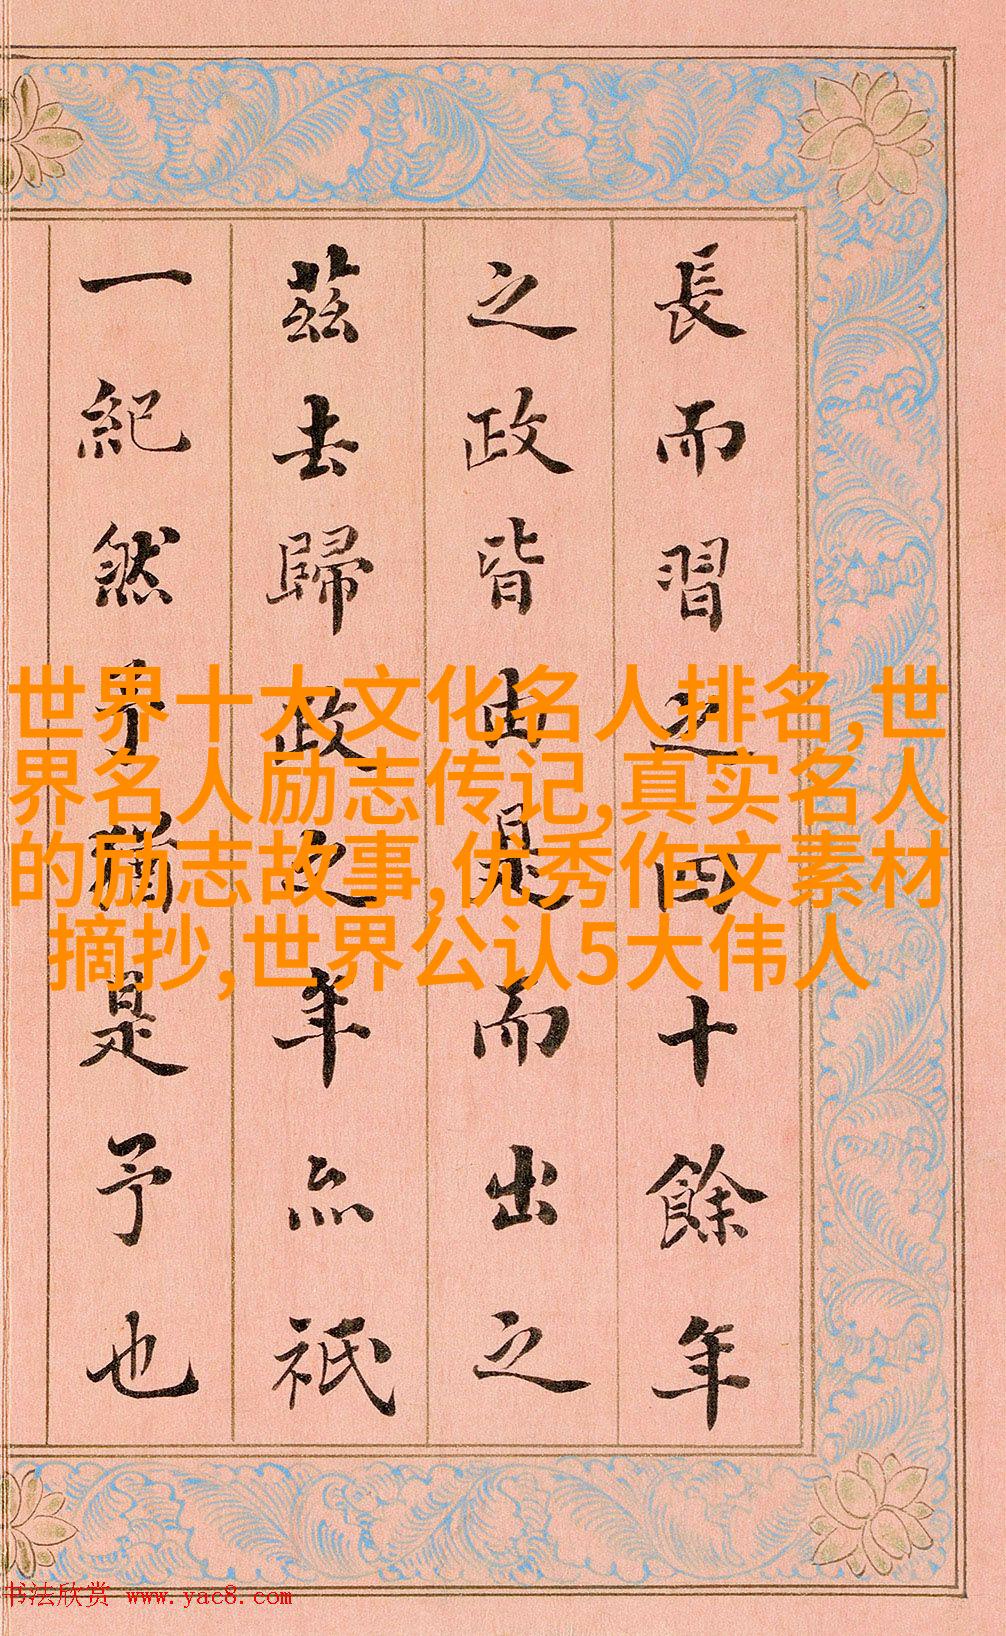 長而習之四十餘年
之政皆由是而出之
茲去歸政之年亦祇
一紀然予猶是予也
世界十大文化名人排名,世
界名人励志传记,真实名人
的励志故事,优秀作文素材
摘抄,世界公认5大伟人
书法欣赏 www.yac8.com